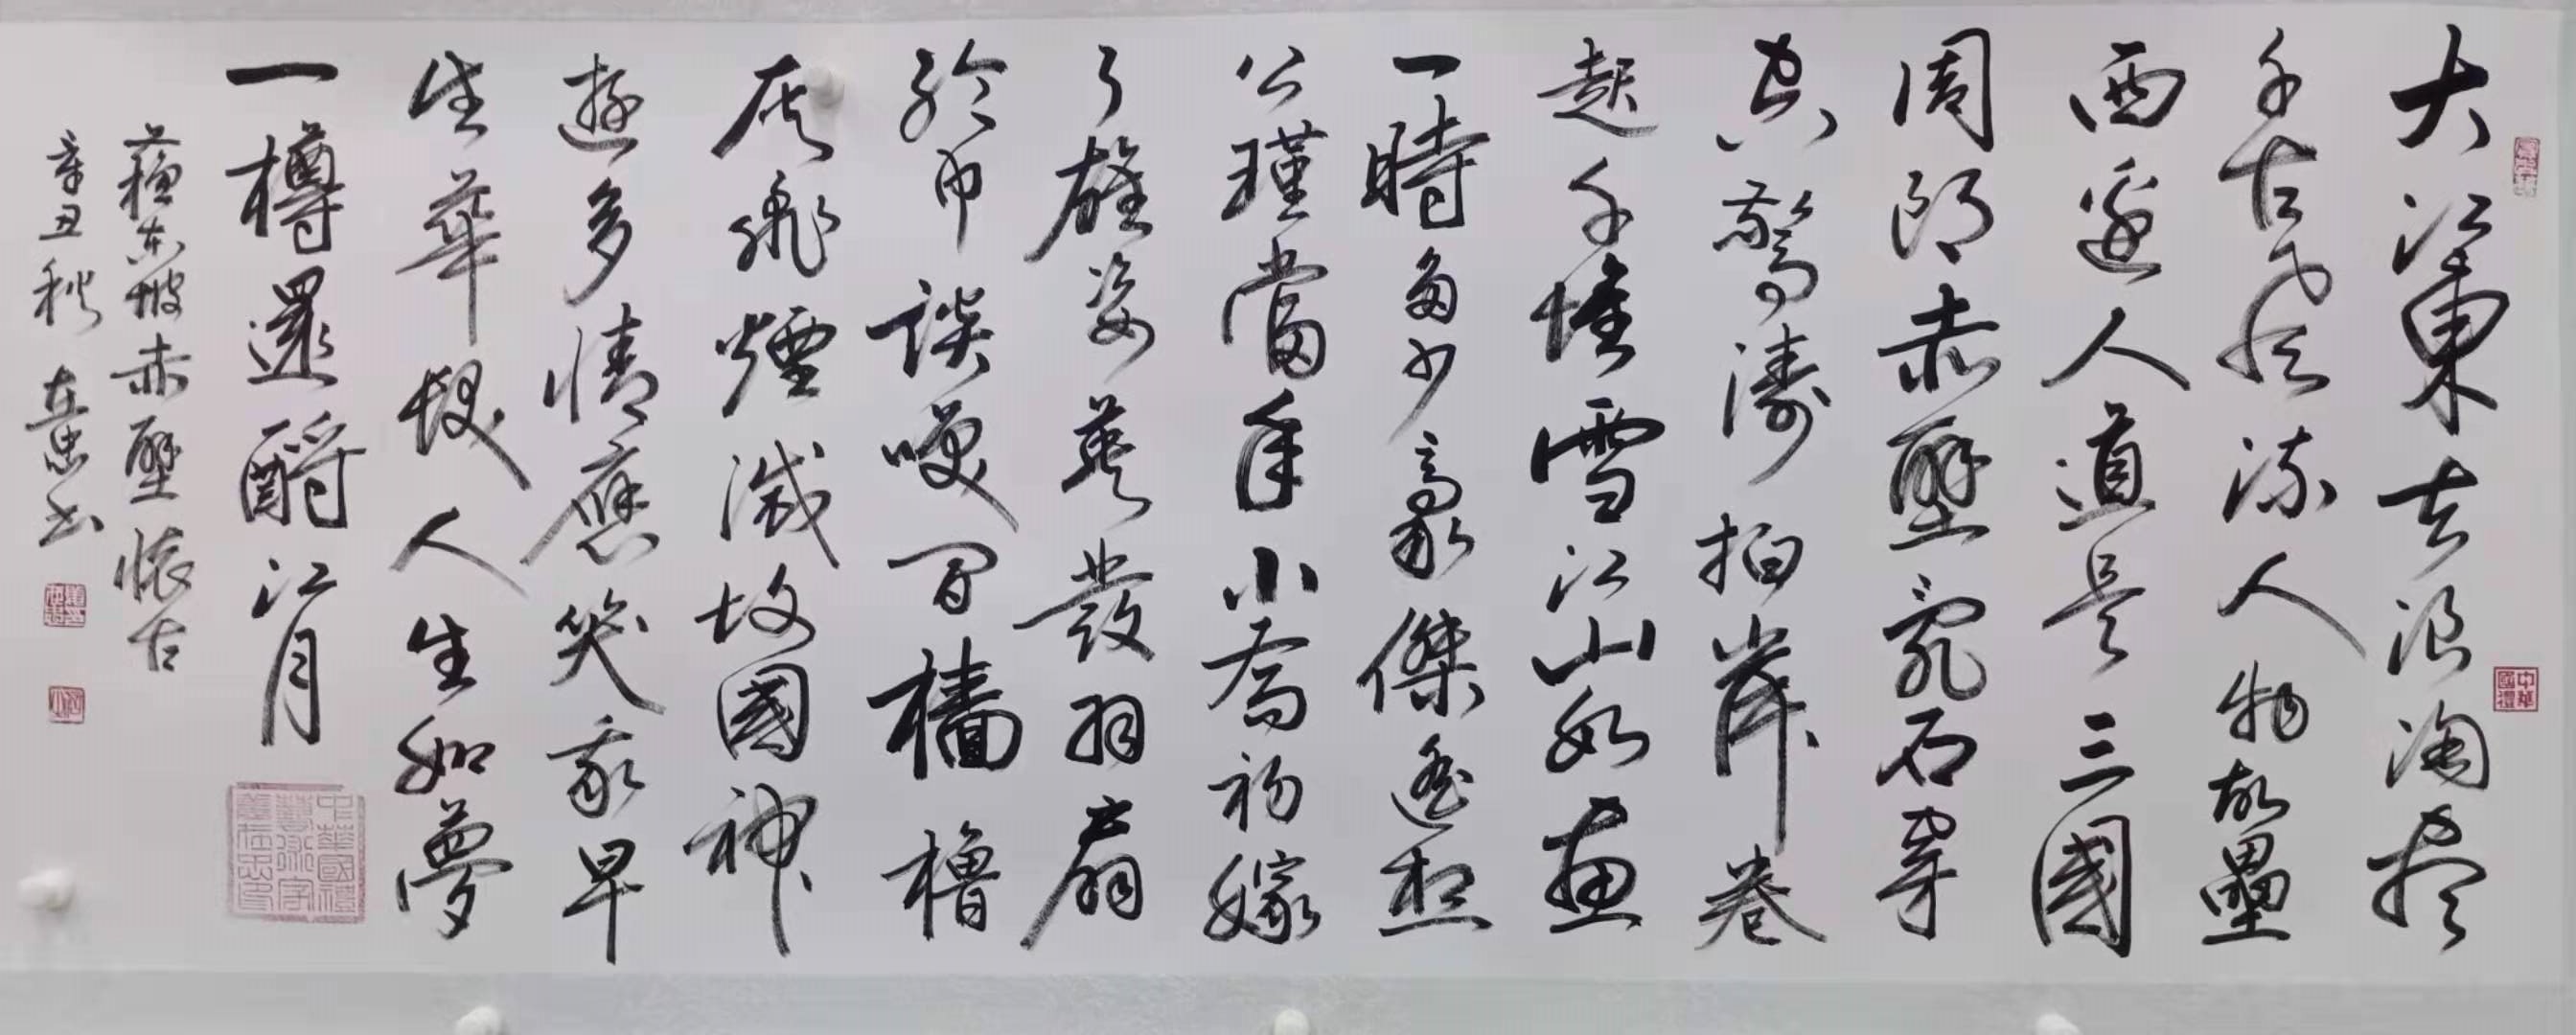 大江東去浪淘盡
千古風流人物故壘
西邊人道是三國
周郎赤壁亂石穿
空驚濤拍岸卷
起千堆雪江山如畫
一時多少豪傑遙想
公瑾當年小喬初嫁
了雄姿英發羽扇
綸巾談笑間檣櫓
灰飛煙滅故國神
遊多情應笑我早
生華髮人生如夢
一樽還酹江月
蘇東坡赤壁懷古
辛丑秋 孟忠书
中華國禮
中華國禮藝術家孟忠印